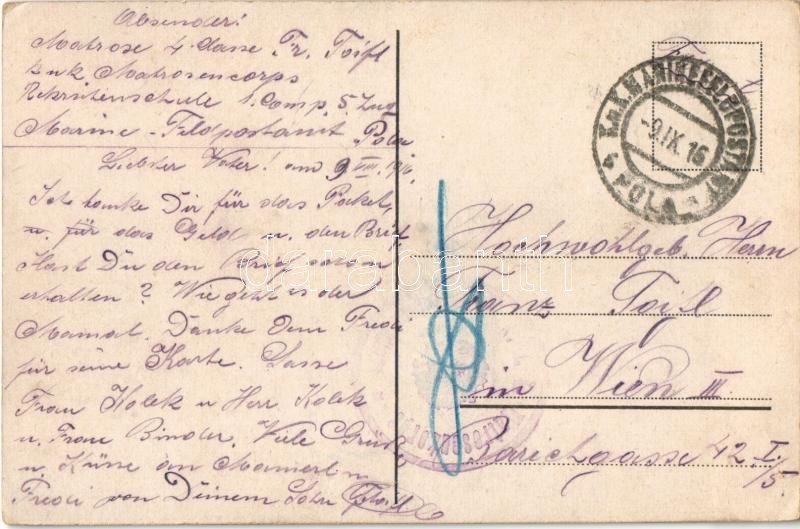 Absender:
Matrose 4. Classe Fr. Toifl
k.u.k. Matrosencorps
Rekrutenschule 1. Comp. 5. Zug
Marine-Feldpostamt Pola
Liebster Vater! am 9 VIII. 1916.
Ich danke Dir für das Paket,
u. für das Geld u. den Brief.
Hast Du den Brief schon
erhalten? Wie geht es der
Mama. Danke dem Fredi
für seine Karte. Lasse
Frau Kolek u Herr Kolek
u. Frau Binder, Viele Grüße
u. Küsse an Mamerl u
Fredi von Deinem Sohn
K.u.K. MARINEFELDPOSTAMT
-9.IX.16
POLA
Hochwohlgeb. Herrn
Franz Toifl
in Wien III.
Barichgasse 42 I./5.
darabanth